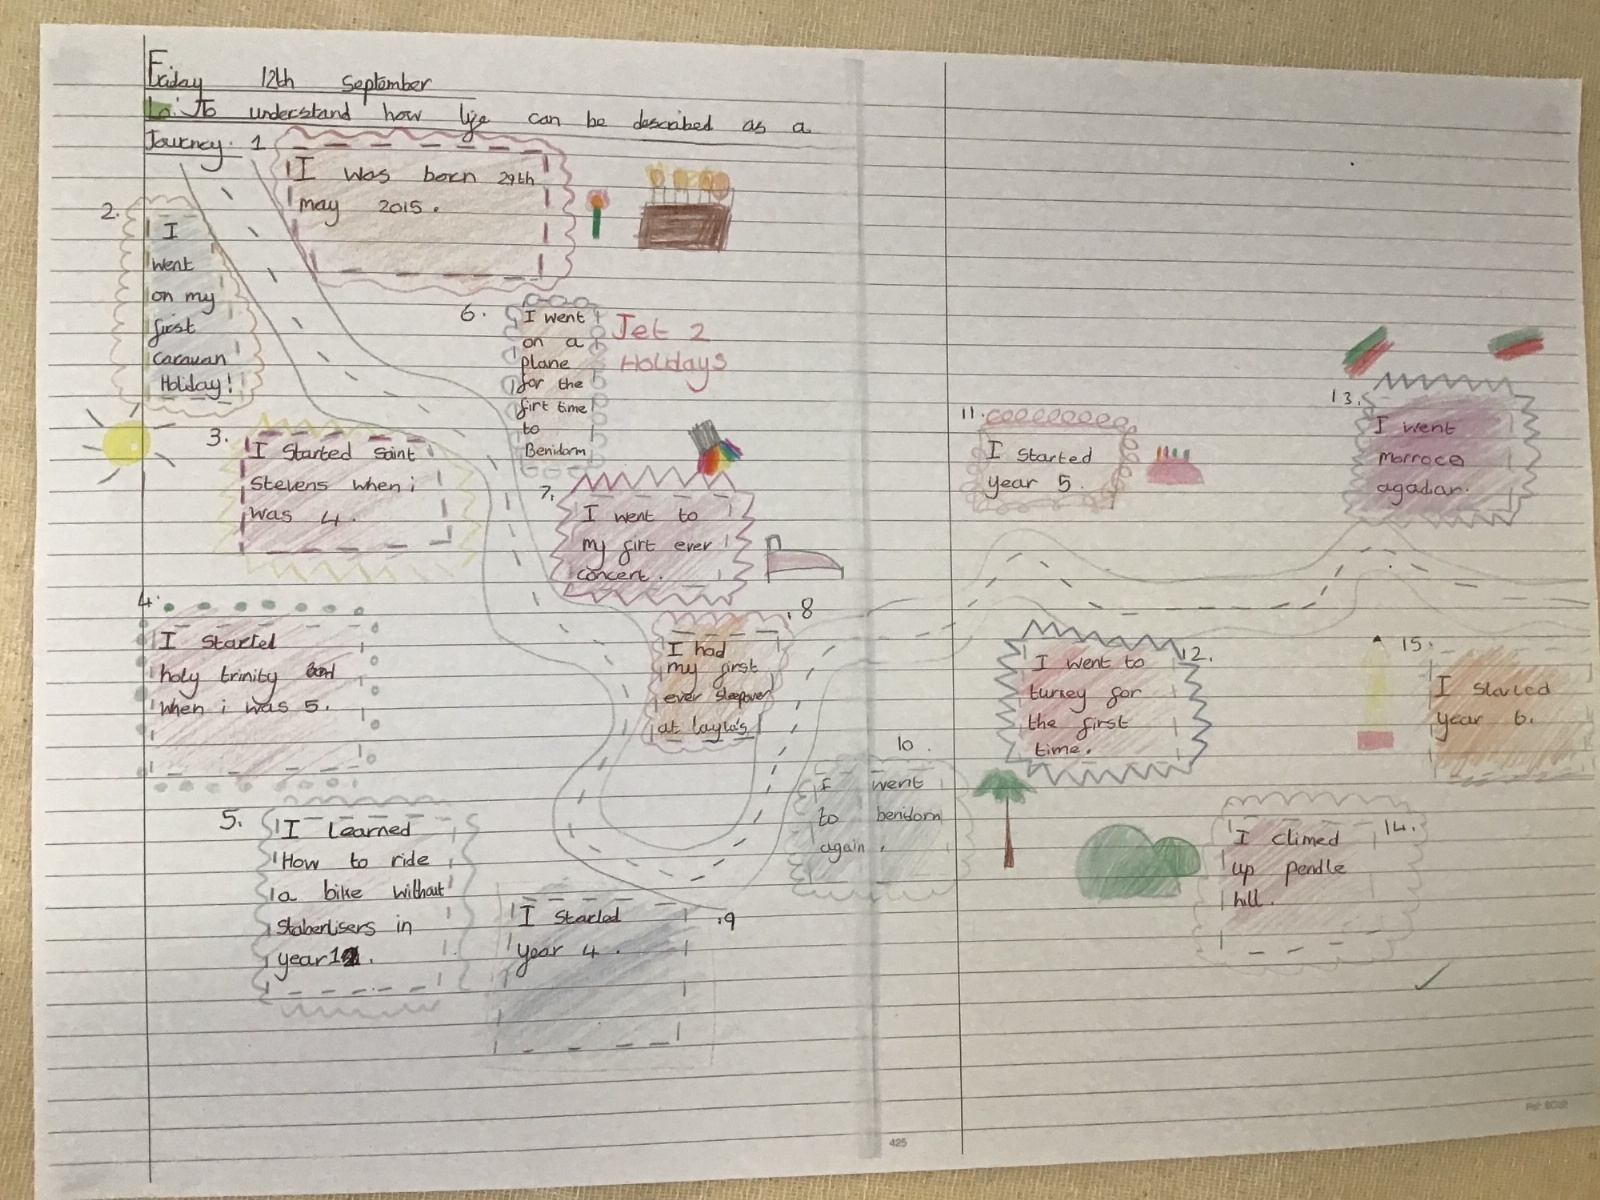 Friday 12th September
Lo: To understand how life can be described as a
Journey.
1
I was born 29th
may 2015.
2.
I
went
on my
first
caravan
Holiday!
3.
I started Saint
Stevens when i
was 4.
4.
I started
holy trinity
when i was 5.
5.
I learned
How to ride
a bike without
staberlisers in
year 1.
6.
I went
on a
plane
for the
firt time
to
Benidorm
Jet 2
Holidays
7.
I went to
my firt ever
concert.
8
I had
my first
ever sleepover
at layla's
.9
I started
year 4.
10.
I went
to benidorm
again.
11.
I started
year 5.
12.
I went to
turkey for
the first
time.
13.
I went
morroco
agadar.
14.
I climed
up pendle
hill.
15.
I started
year 6.
425